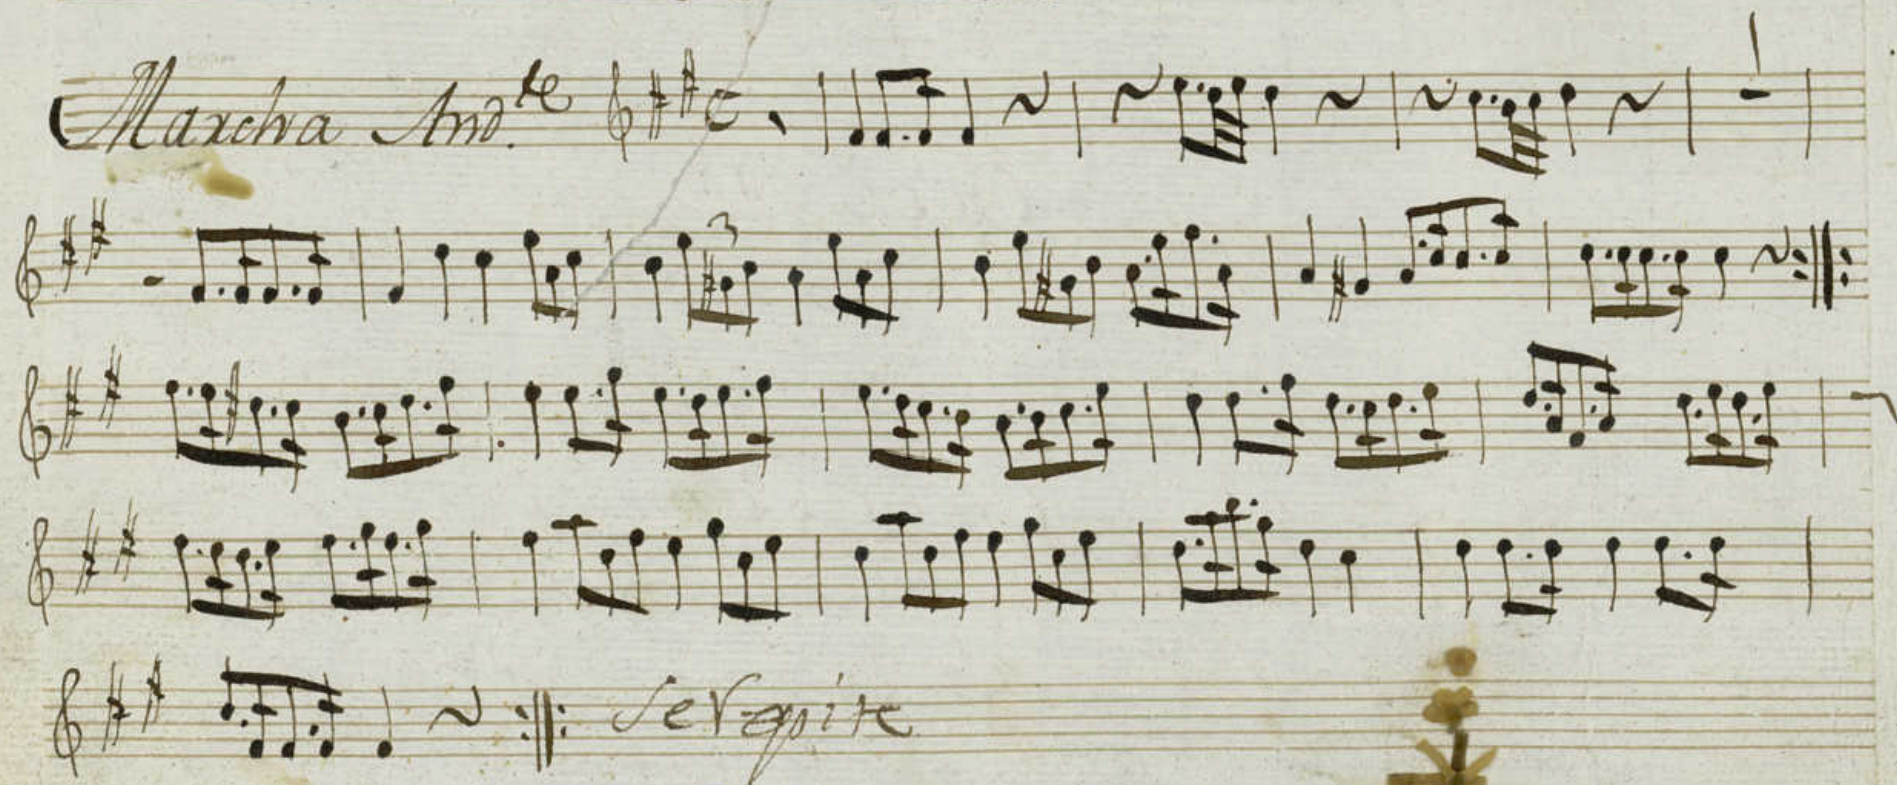 Marcha And.te
3
Se Repite